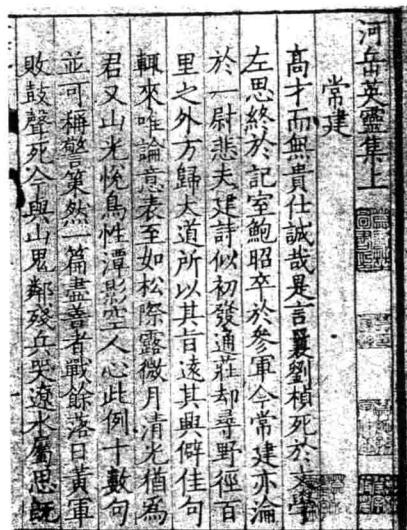 河岳英靈集上
常建
高才而無貴仕誠哉是言曩劉楨死於文學
左思終於記室鮑昭卒於參軍今常建亦淪
於一尉悲夫建詩似初發通莊却尋野徑百
里之外方歸大道所以其旨遠其興僻佳句
輒來唯論意表至如松際露微月清光猶為
君又山光悅鳥性潭影空人心此例十數句
並可稱警策然一篇盡善者戰餘落日黃軍
敗鼓聲死今與山鬼鄰殘兵哭遼水屬思旣